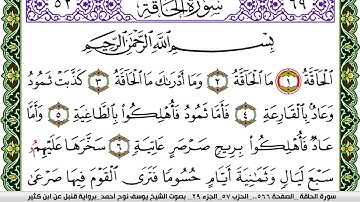 ٥٢ سُورَةُ الْحَاقَّةِ ٦٩
بِسْمِ اللَّهِ الرَّحْمَٰنِ الرَّحِيمِ
الْحَاقَّةُ ١ مَا الْحَاقَّةُ ٢ وَمَا أَدْرَىٰكَ مَا الْحَاقَّةُ ٣ كَذَّبَتْ ثَمُودُ
وَعَادٌ بِالْقَارِعَةِ ٤ فَأَمَّا ثَمُودُ فَأُهْلِكُواْ بِالطَّاغِيَةِ ٥ وَأَمَّا
عَادٌ فَأُهْلِكُواْ بِرِيحٍ صَرْصَرٍ عَاتِيَةٍ ٦ سَخَّرَهَا عَلَيْهِمُ
سَبْعَ لَيَالٍ وَثَمَٰنِيَةَ أَيَّامٍ حُسُومًا فَتَرَى الْقَوْمَ فِيهَا صَرْعَىٰ
سورة الحاقة _ الصفحة ٥٦٦_ الحزب ٥٧_ الجزء ٢٩_ بصوت الشيخ يوسف نوح أحمد_ برواية قنبل عن ابن كثير